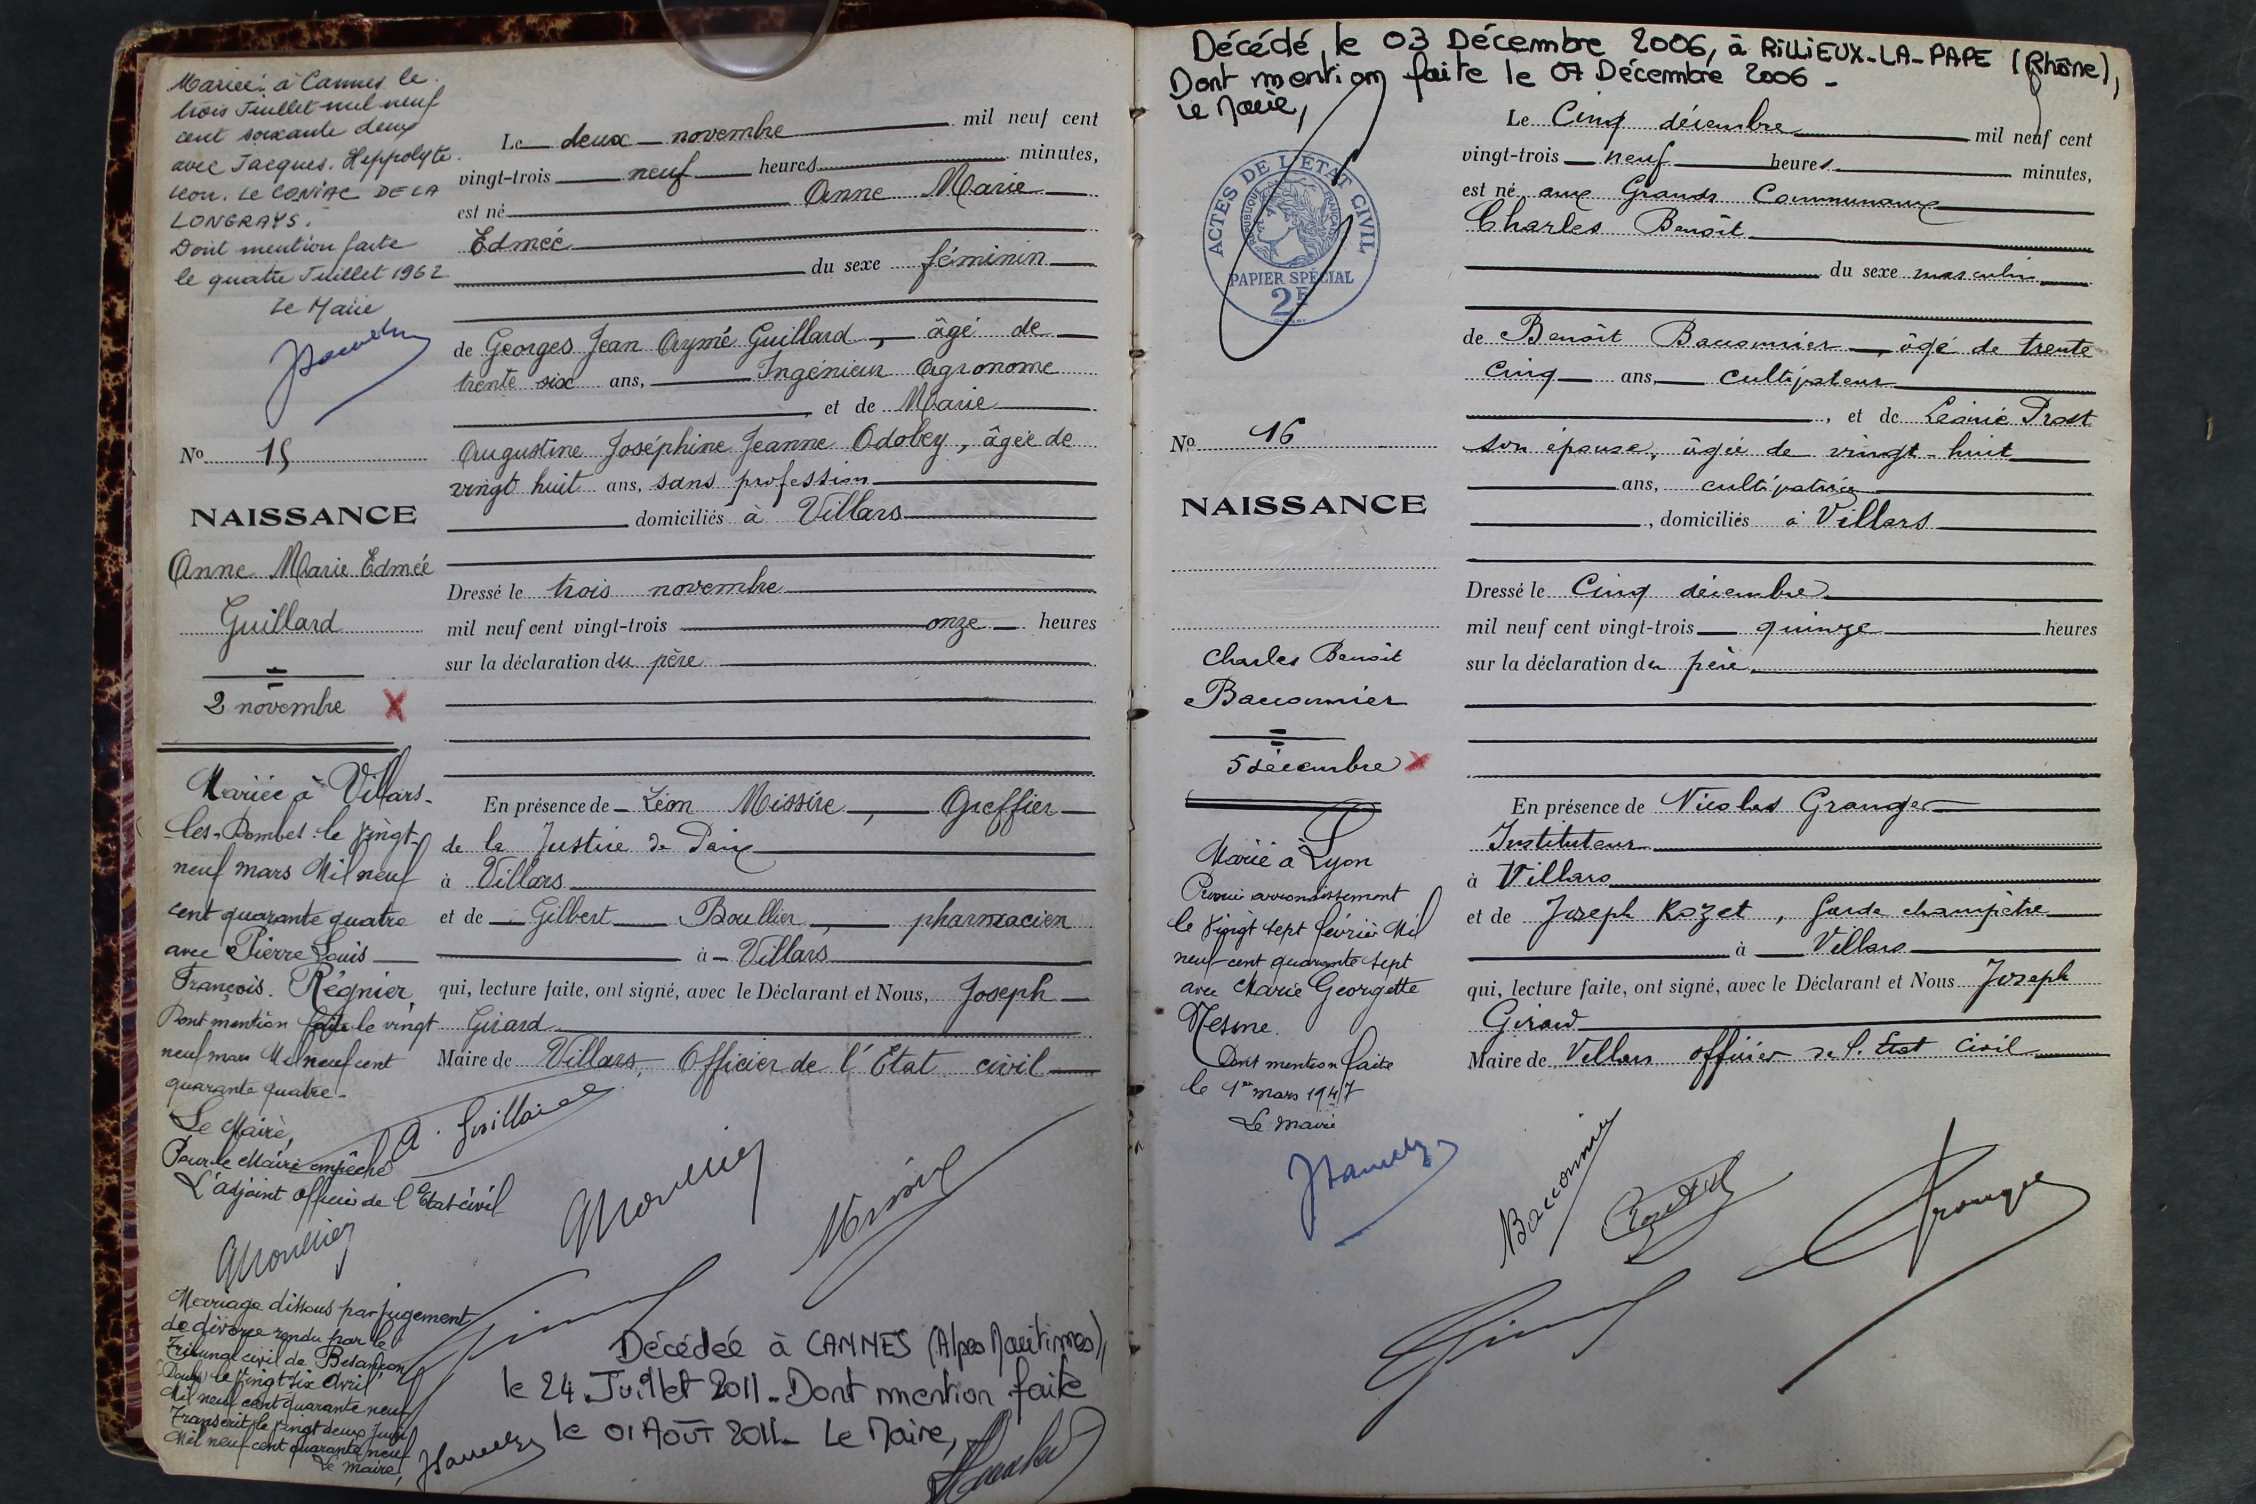 Mariée à Cannes le
trois Juillet mil neuf
cent soixante deux
avec Jacques. Hippolyte.
Léon. LE CONIAC DE LA
LONGRAYS.
Dont mention faite
le quatre Juillet 1962
Le Maire
No 15
NAISSANCE
Anne Marie Edmée
Guillard
2 novembre X
Mariée à Villars-
les-Dombes le vingt-
neuf mars Mil neuf
cent quarante quatre
avec Pierre Louis
François. Régnier.
Dont mention faite le vingt
neuf mars Mil neuf cent
quarante quatre.
Le Maire,
Pour le Maire empêché
L'adjoint officier de l'Etat-civil
Mariage dissous par jugement
de divorce rendu par le
Tribunal civil de Besançon
(Doubs) le vingt six Avril
Mil neuf cent quarante neuf
Transcrit le vingt deux Juin
Mil neuf cent quarante neuf
Le maire,
Le deux novembre mil neuf cent
vingt-trois neuf heures minutes,
est né Anne Marie
Edmée
du sexe féminin
de Georges Jean Aymé Guillard, âgé de
trente six ans, Ingénieur Agronome
, et de Marie
Augustine Joséphine Jeanne Odobey, âgée de
vingt huit ans, sans profession
domiciliés à Villars
Dressé le trois novembre
mil neuf cent vingt-trois onze heures
sur la déclaration du père
En présence de Léon Missire, Greffier
de la Justice de Paix
à Villars
et de Gilbert Boullier, pharmacien
à Villars
qui, lecture faite, ont signé, avec le Déclarant et Nous, Joseph
Girard
Maire de Villars, Officier de l'Etat civil
A. Guillard
Décédée à CANNES (Alpes Maritimes),
le 24 Juillet 2011. Dont mention faite
le 01 AOÛT 2011. Le Maire,
Décédé, le 03 Décembre 2006, à RILLIEUX-LA-PAPE (Rhône),
Dont mention faite le 07 Décembre 2006 -
Le Maire,
ACTES DE L'ÉTAT CIVIL
RÉPUBLIQUE FRANÇAISE
PAPIER SPÉCIAL
2F
No 16
NAISSANCE
Charles Benoît
Bacconnier
5 décembre X
Marié à Lyon
arrondissement
le vingt sept février Mil
neuf cent quarante sept
avec Marie Georgette
Mesme.
Dont mention faite
le 1er mars 1947
Le maire
Le Cinq décembre mil neuf cent
vingt-trois neuf heures minutes,
est né aux Grands Communaux
Charles Benoît
du sexe masculin
de Benoît Bacconnier, âgé de trente
cinq ans, cultivateur
, et de Léonie Prost
son épouse, âgée de vingt-huit
ans, cultivatrice
, domiciliés à Villars
Dressé le Cinq décembre
mil neuf cent vingt-trois quinze heures
sur la déclaration du père
En présence de Nicolas Granger
Instituteur
à Villars
et de Joseph Rozet, Garde champêtre
à Villars
qui, lecture faite, ont signé, avec le Déclarant et Nous Joseph
Girard
Maire de Villars officier de l'Etat civil
Bacconnier